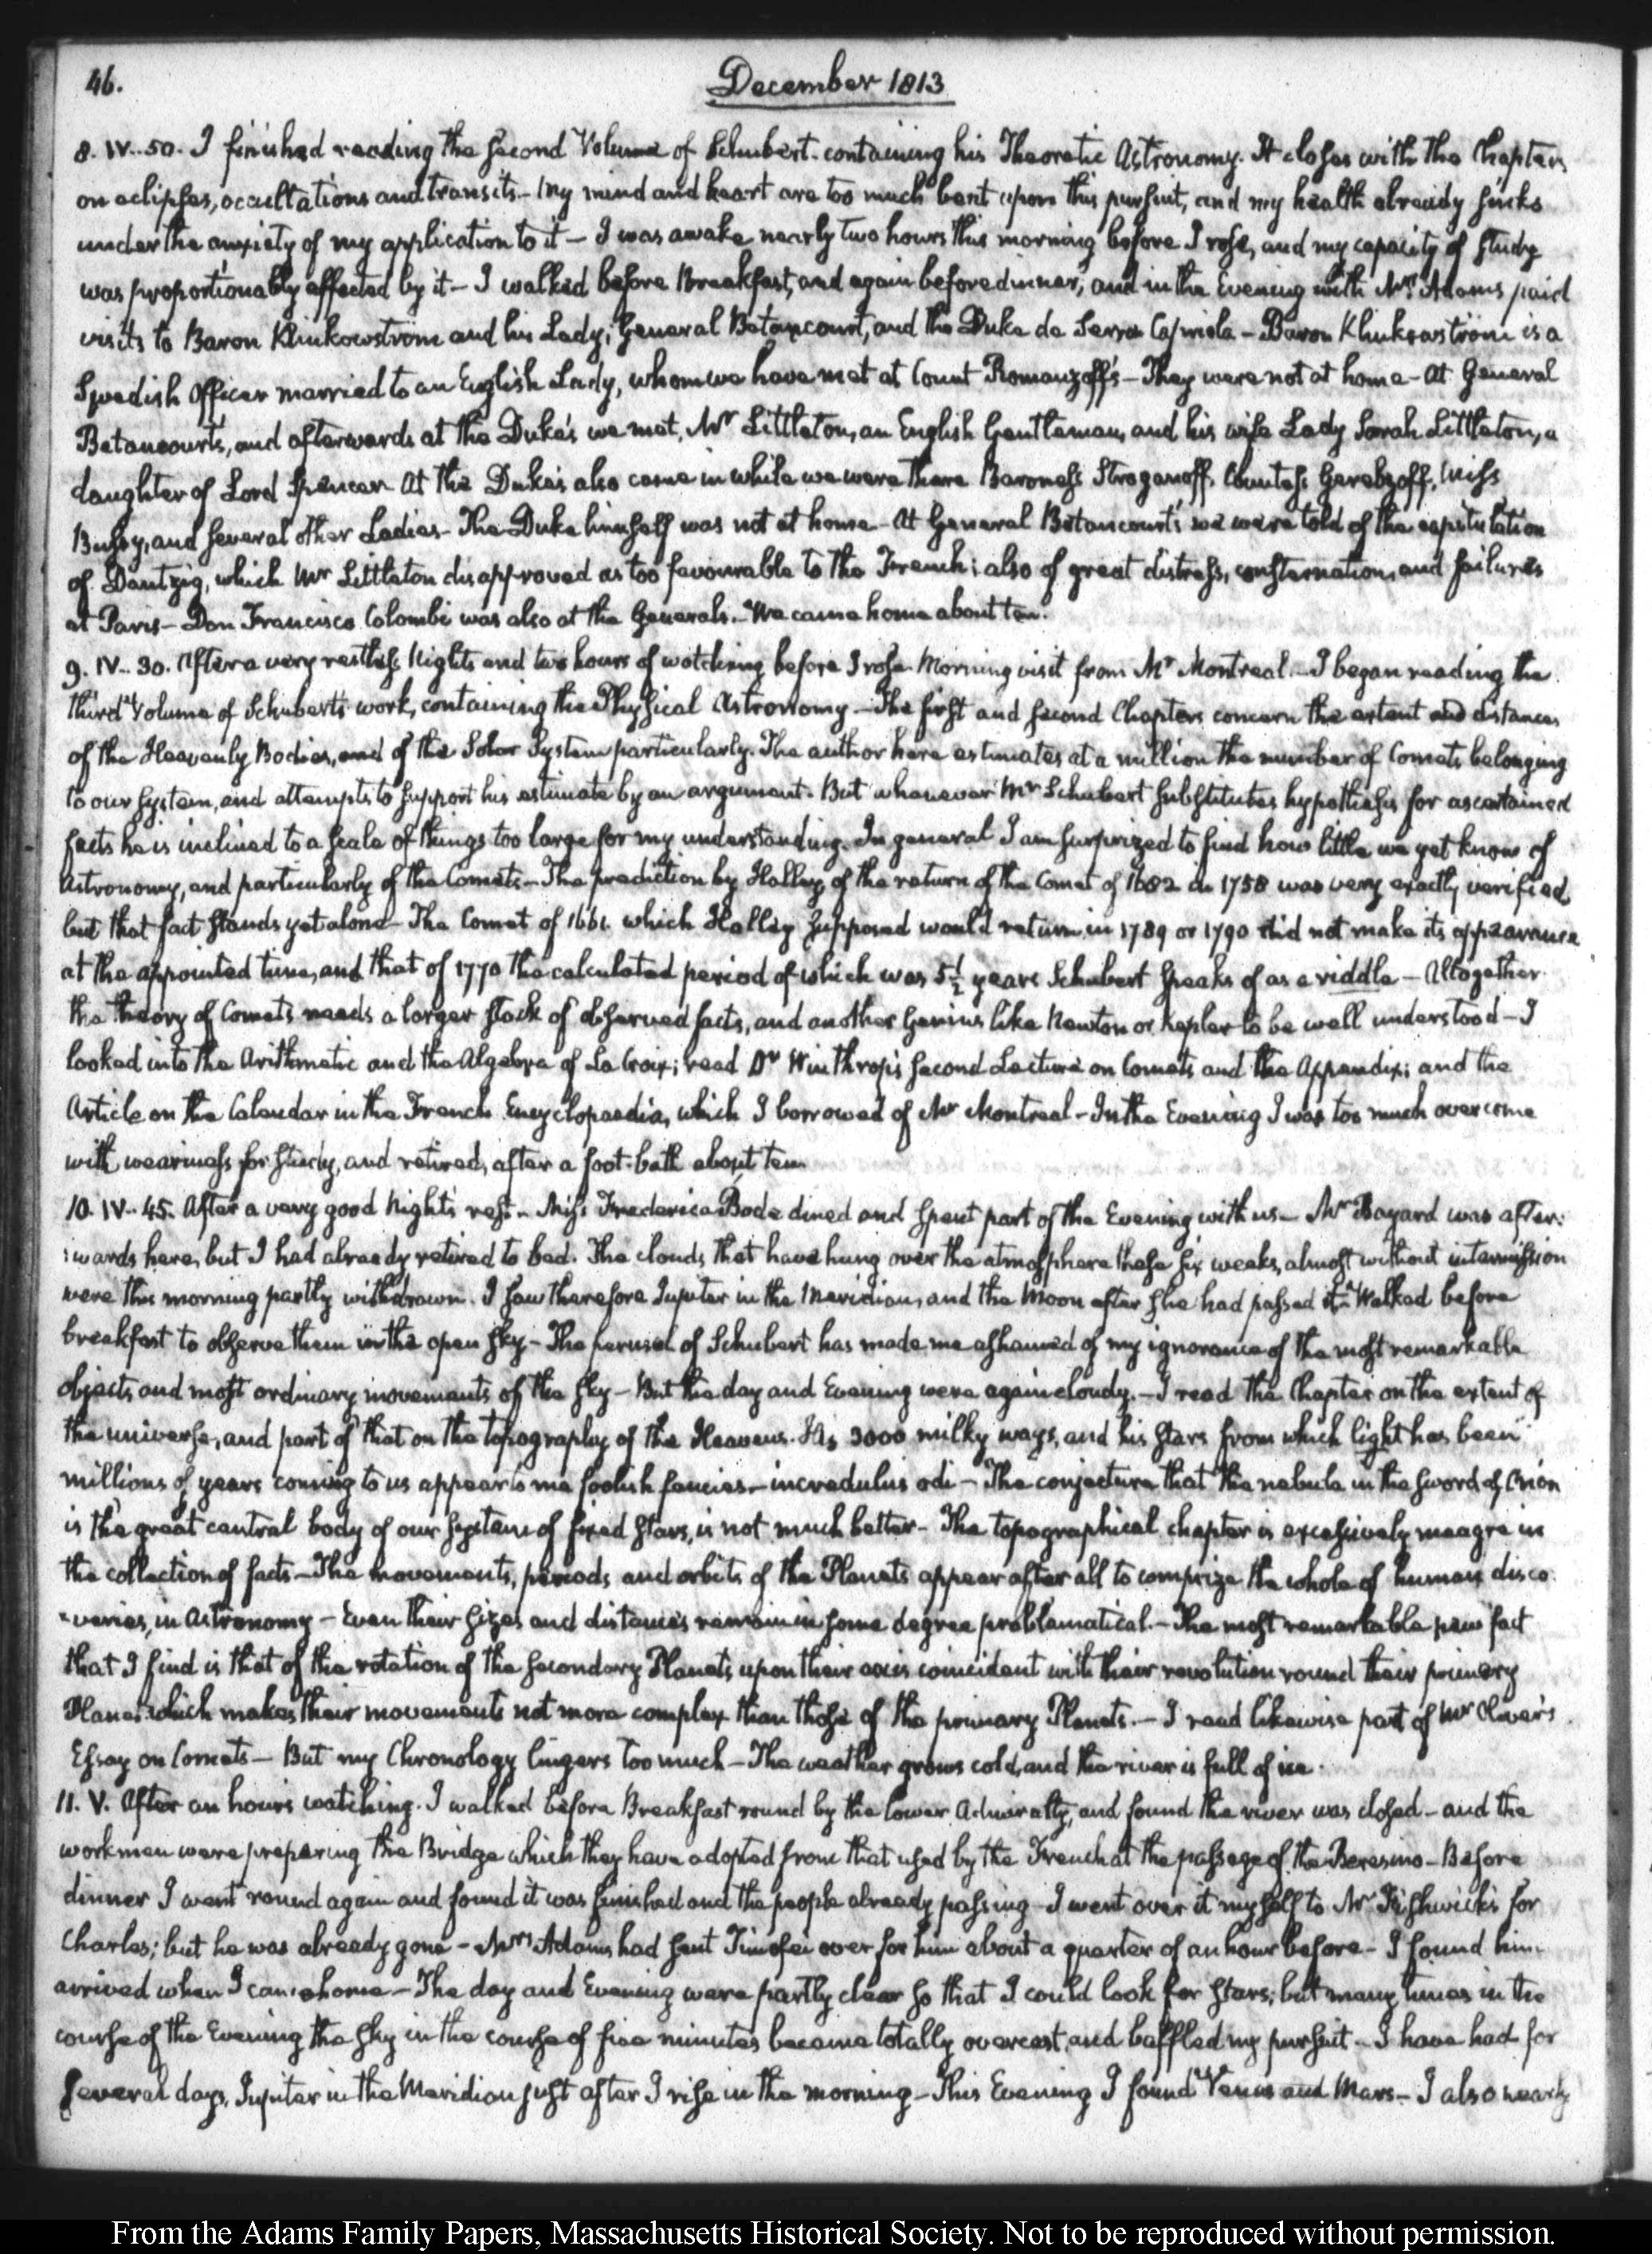 46.
December 1813
8. IV..50. I finished reading the second Volume of Schubert containing his Theoretic Astronomy. It closes with the Chapters
on eclipses, occultations and transits — My mind and heart are too much bent upon this pursuit, and my health already sinks
under the anxiety of my application to it — I was awake nearly two hours this morning before I rose, and my capacity of study
was proportionably affected by it — I walked before Breakfast, and again before dinner, and in the Evening with Mrs. Adams paid
visits to Baron Klinkowstrom and his Lady; General Betancourt, and the Duke de Serra Capriola — Baron Klinkowström is a
Swedish Officer married to an English Lady, whom we have met at Count Romanzoff's — They were not at home — At General
Betancourt's, and afterwards at the Duke's we met, Mr Littleton, an English Gentleman, and his wife Lady Sarah Littleton, a
daughter of Lord Spencer. At the Duke's also came in while we were there Baroness Stroganoff, Countess Gerebzoff, Miss
Bussy, and several other Ladies — The Duke himself was not at home — At General Betancourt's we were told of the capitulation
of Dantzig, which Mr Littleton disapproved as too favourable to the French; also of great distress, consternation, and failures
at Paris — Don Francisco Colombi was also at the Generals. — We came home about ten.
9. IV..30. After a very restless Night, and two hours of watching before I rose. Morning visit from Mr Montreal — I began reading the
third Volume of Schubert's work, containing the Physical Astronomy. — The first and second Chapters concern the extent and distances
of the Heavenly Bodies, and of the Solar System particularly. The author here estimates at a million the number of Comets belonging
to our system, and attempts to support his estimate by an argument. But whenever Mr Schubert substitutes hypothesis for ascertained
facts he is inclined to a scale of things too large for my understanding. In general I am surprized to find how little we yet know of
Astronomy, and particularly of the Comets — The prediction by Halley of the return of the Comet of 1682 in 1758 was very exactly verified,
but that fact stands yet alone — The Comet of 1661. which Halley supposed would return in 1789 or 1790 did not make its appearance
at the appointed time, and that of 1770 the calculated period of which was 5½ years Schubert speaks of as a riddle — Altogether
the theory of Comets needs a larger stock of observed facts, and another Genius like Newton or Kepler to be well understood — I
looked into the Arithmetic and the Algebra of La Croix; read Dr Winthrop's second Lecture on Comets and the Appendix; and the
Article on the Calendar in the French Encyclopaedia, which I borrowed of Mr Montreal — In the Evening I was too much overcome
with weariness for study, and retired, after a foot-bath about ten
10. IV..45. After a very good Night's rest. — Miss Frederica Bode dined and spent part of the Evening with us — Mr Bayard was after:
:wards here, but I had already retired to bed. The clouds that have hung over the atmosphere these six weeks, almost without intermission
were this morning partly withdrawn. I saw therefore Jupiter in the Meridian, and the Moon after she had passed it — Walked before
breakfast to observe them in the open sky — The perusal of Schubert has made me ashamed of my ignorance of the most remarkable
objects and most ordinary movements of the sky — But the day and Evening were again cloudy. — I read the Chapter on the extent of
the universe, and part of that on the topography of the Heavens. His 3000 milky ways, and his stars from which light has been
millions of years coming to us appear to me foolish fancies — incredulus odi — The conjecture that the nebula in the sword of Orion
is the great central body of our system of fixed stars, is not much better — The topographical chapter is excessively meagre in
the collection of facts — The movements, periods and orbits of the Planets appear after all to comprize the whole of human disco:
:veries, in Astronomy — Even their sizes and distances remain in some degree problematical. — The most remarkable new fact
that I find is that of the rotation of the secondary Planets upon their axis coincident with their revolution round their primary
Planet which makes their movements not more complex than those of the primary Planets. — I read likewise part of Mr Oliver's
Essay on Comets — But my Chronology lingers too much — The weather grows cold, and the river is full of ice.
11. V. After an hour's watching. I walked before Breakfast round by the lower Admiralty, and found the river was closed — and the
workmen were preparing the Bridge which they have adopted from that used by the French at the passage of the Beresino — Before
dinner I went round again and found it was finished and the people already passing — I went over it myself to Mr Fishwick's for
Charles; but he was already gone — Mrs Adams had sent Timofei over for him about a quarter of an hour before — I found him
arrived when I came home — The day and Evening were partly clear so that I could look for stars; but many times in the
course of the Evening the sky in the course of five minutes became totally overcast, and baffled my pursuit — I have had for
several days, Jupiter in the Meridian just after I rise in the morning — This Evening I found Venus and Mars — I also nearly
From the Adams Family Papers, Massachusetts Historical Society. Not to be reproduced without permission.